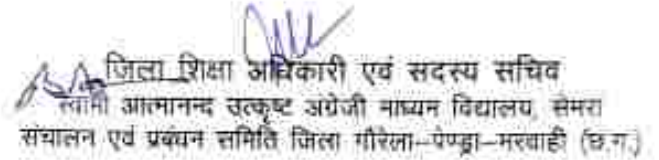 जिला शिक्षा अधिकारी एवं सदस्य सचिव
स्वामी आत्मानन्द उत्कृष्ट अंग्रेजी माध्यम विद्यालय, सेमरा
संचालन एवं प्रबंधन समिति जिला गौरेला–पेण्ड्रा–मरवाही (छ.ग.)